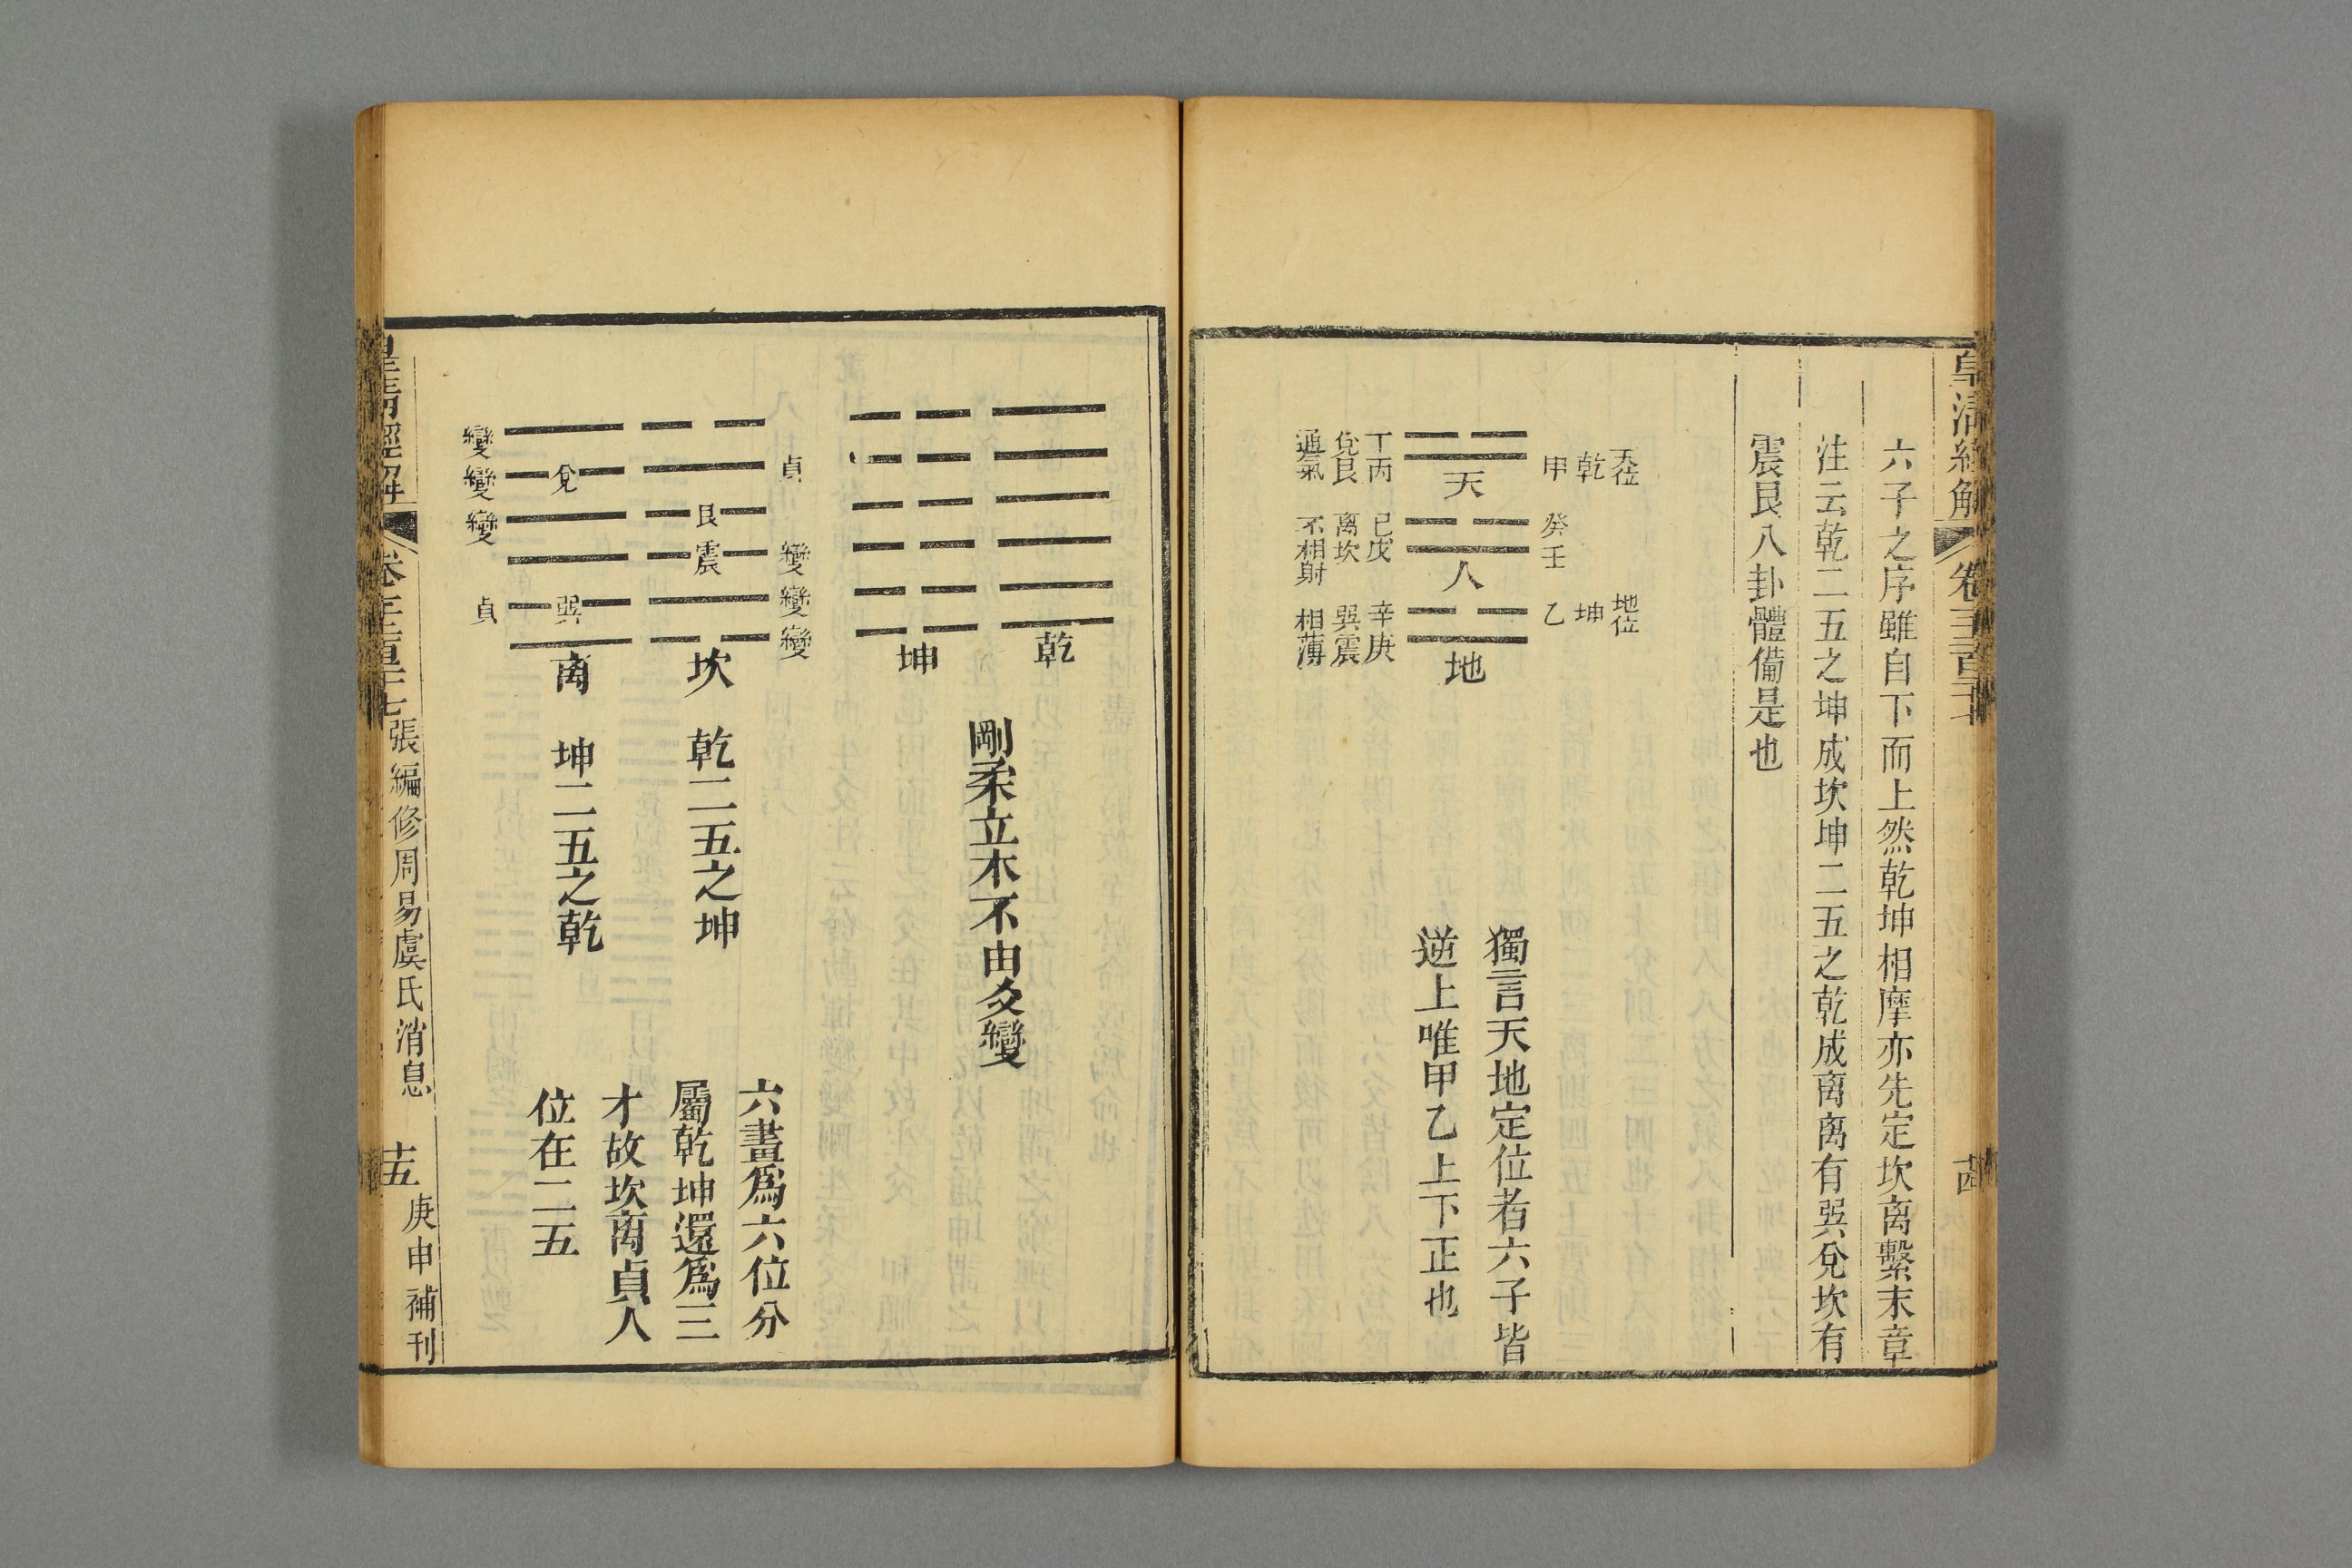 皇清經解
卷一千二百二十七
十四
六子之序雖自下而上然乾坤相摩亦先定坎离繫末章
注云乾二五之坤成坎坤二五之乾成离离有巽兌坎有
震艮八卦體備是也
天位
地位
乾
坤
甲
癸壬
乙
天
人
地
丁丙
己戊
辛庚
兌艮
离坎
巽震
通氣
不相射
相薄
獨言天地定位者六子皆
逆上唯甲乙上下正也
乾
坤
剛柔立本不由爻變
貞
變
變
變
艮
震
坎
乾二五之坤
兌
巽
离
坤二五之乾
變
變
變
貞
六畫爲六位分
屬乾坤還爲三
才故坎离貞人
位在二五
張編修周易虞氏消息
十五
庚申補刊